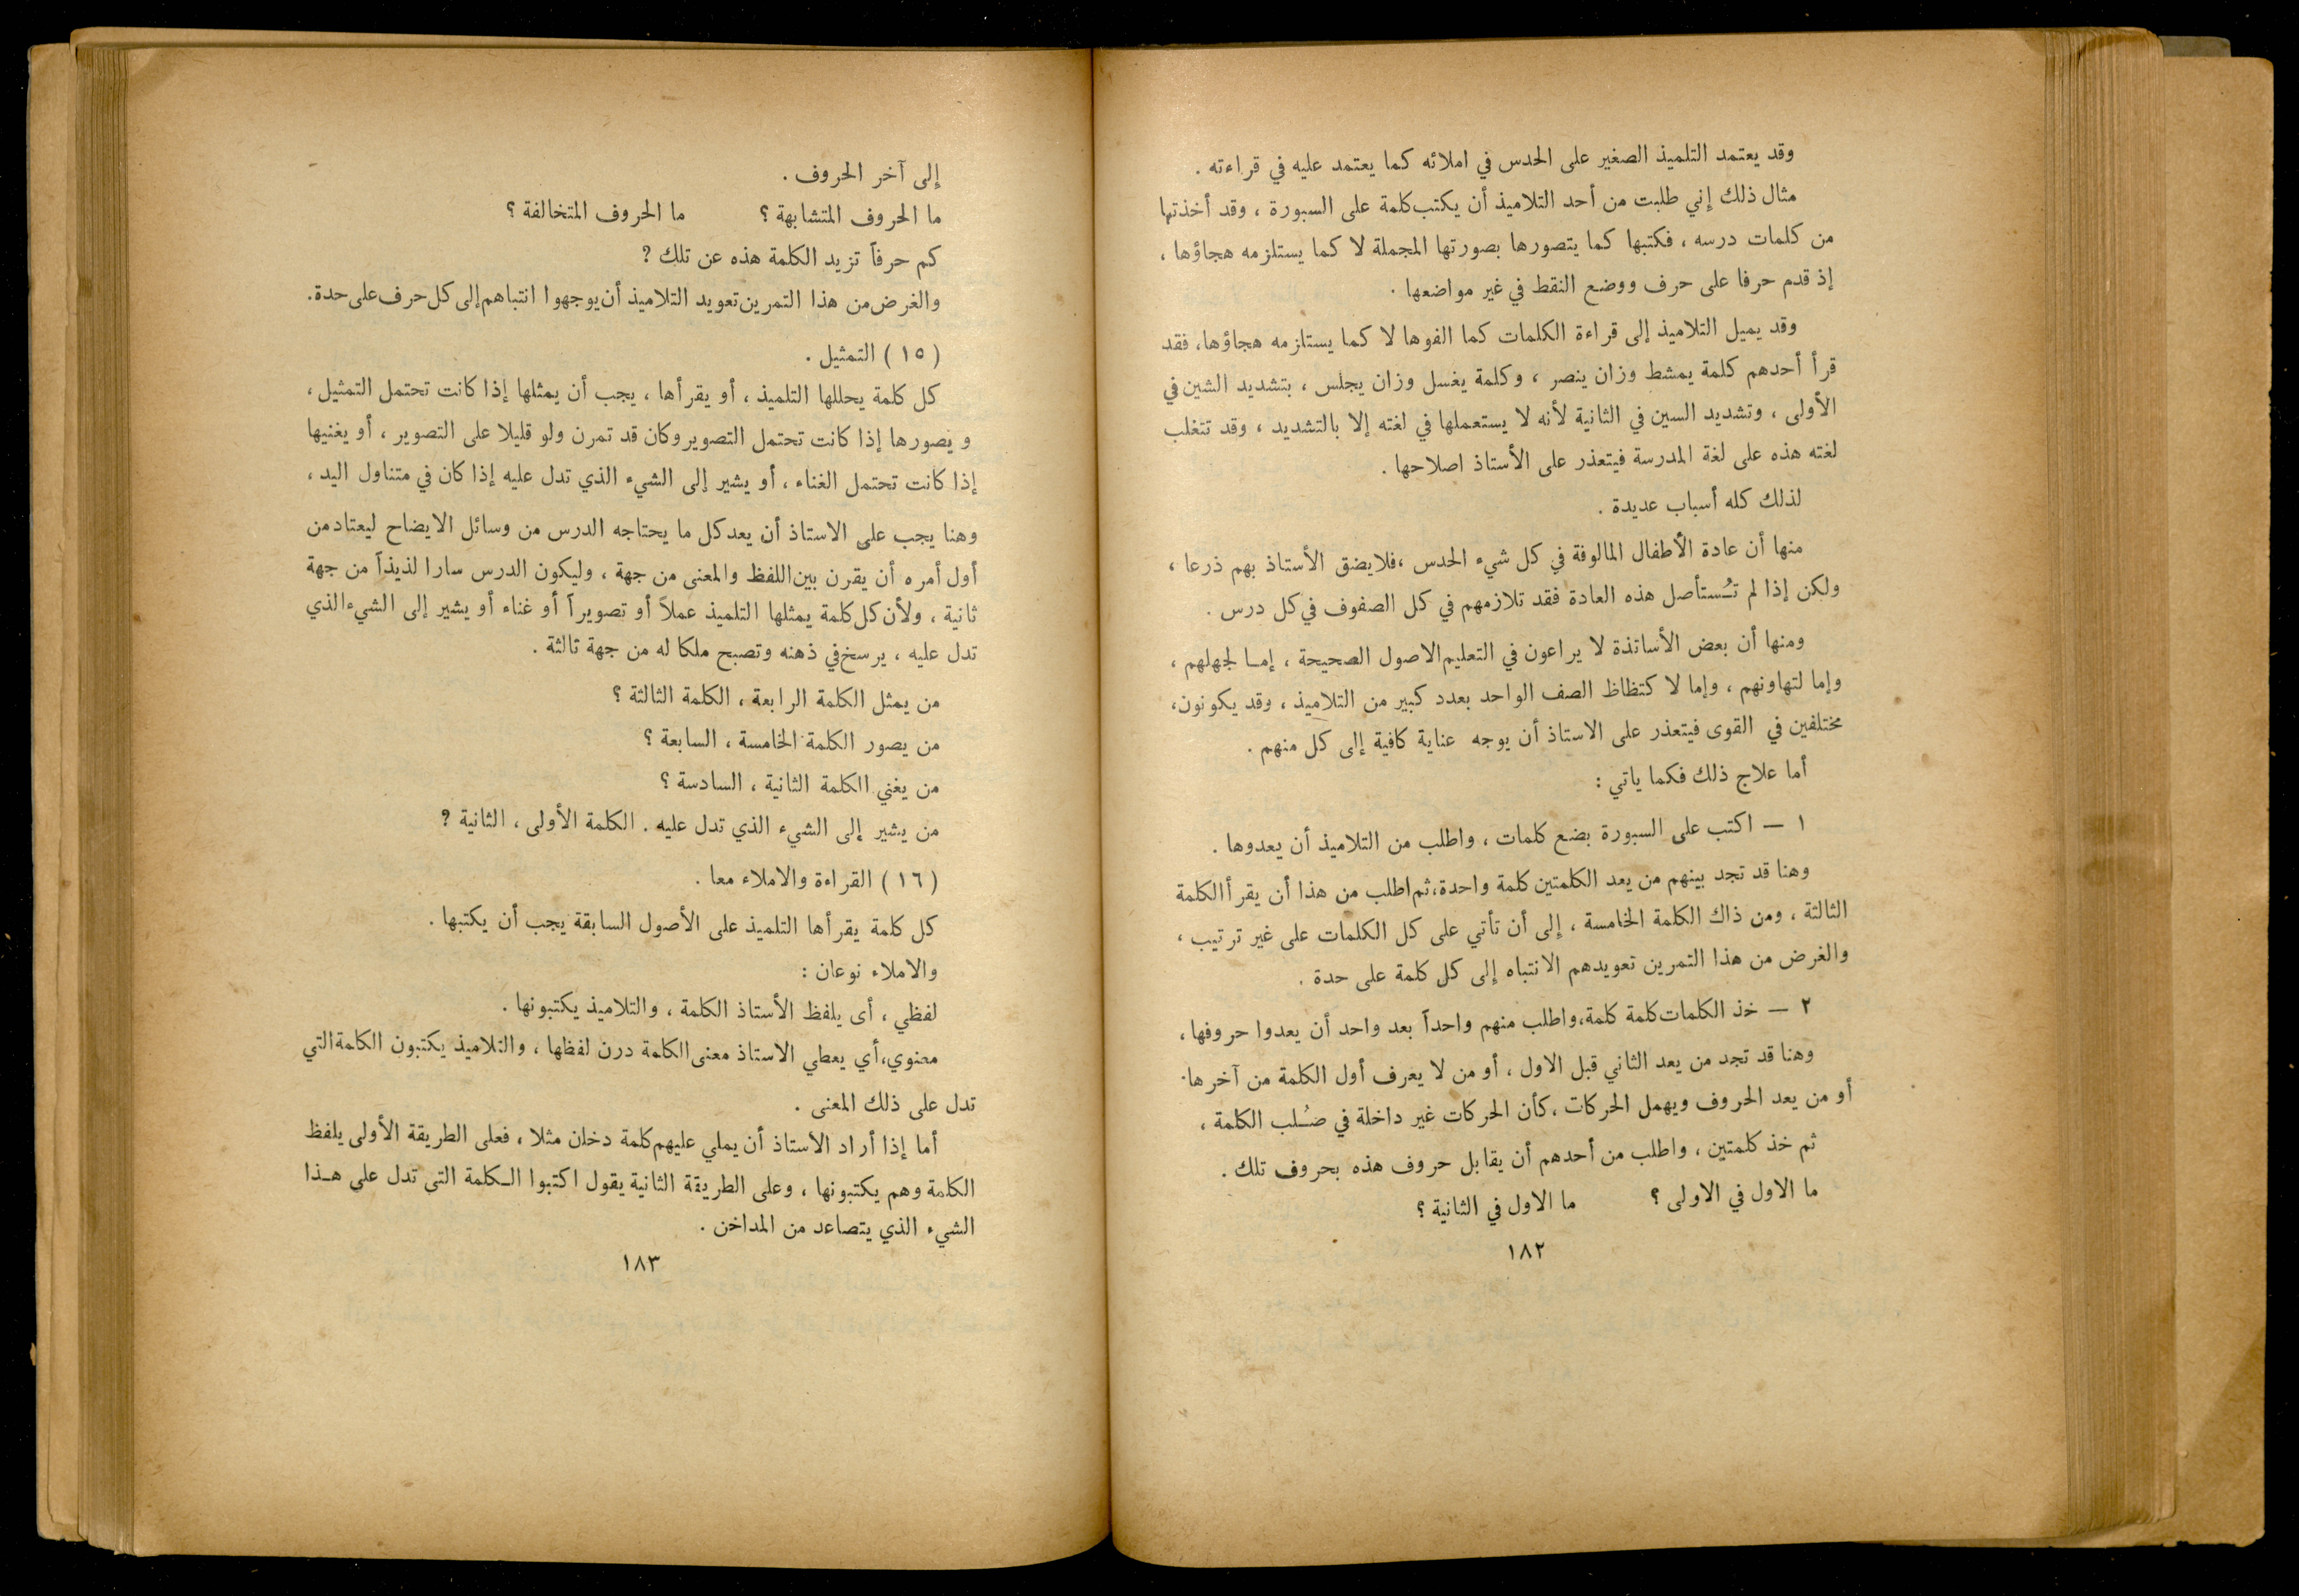 وقد يعتمد التلميذ الصغير على الحدس في املائه كما يعتمد عليه في قراءته .
مثال ذلك إني طلبت من أحد التلاميذ أن يكتب كلمة على السبورة ، وقد أخذتها
من كلمات درسه ، فكتبها كما يتصورها بصورتها المجملة لا كما يستلزمه هجاؤها ،
إذ قدم حرفا على حرف ووضع النقط في غير مواضعها .
وقد يميل التلاميذ إلى قراءة الكلمات كما الفوها لا كما يستلزمه هجاؤها، فقد
قرأ أحدهم كلمة يمشط وزان ينصر ، وكلمة يغسل وزان يجلس ، بتشديد الشين في
الأولى ، وتشديد السين في الثانية لأنه لا يستعملها في لغته إلا بالتشديد ، وقد تتغلب
لغته هذه على لغة المدرسة فيتعذر على الأستاذ اصلاحها .
لذلك كله أسباب عديدة .
منها أن عادة الأطفال المالوفة في كل شيء الحدس ،فلا يضق الأستاذ بهم ذرعا ،
ولكن إذا لم تُستأصل هذه العادة فقد تلازمهم في كل الصفوف في كل درس .
ومنها أن بعض الأساتذة لا يراعون في التعليم الاصول الصحيحة ، إما لجهلهم ،
وإما لتهاونهم ، وإما لاكتظاظ الصف الواحد بعدد كبير من التلاميذ ، وقد يكونون،
مختلفين في القوى فيتعذر على الاستاذ أن يوجه عناية كافية إلى كل منهم .
أما علاج ذلك فكما ياتي :
١ — اكتب على السبورة بضع كلمات ، واطلب من التلاميذ أن يعدوها .
وهنا قد تجد بينهم من يعد الكلمتين كلمة واحدة،ثم اطلب من هذا أن يقرأ الكلمة
الثالثة ، ومن ذاك الكلمة الخامسة ، إلى أن تأتي على كل الكلمات على غير ترتيب ،
والغرض من هذا التمرين تعويدهم الانتباه إلى كل كلمة على حدة .
٢ — خذ الكلمات كلمة كلمة،واطلب منهم واحداً بعد واحد أن يعدوا حروفها ،
وهنا قد تجد من يعد الثاني قبل الاول ، أو من لا يعرف أول الكلمة من آخرها.
أو من يعد الحروف ويهمل الحركات ،كأن الحركات غير داخلة في صُلب الكلمة ،
ثم خذ كلمتين ، واطلب من أحدهم أن يقابل حروف هذه بحروف تلك .
ما الاول في الاولى ؟ ما الاول في الثانية ؟
١٨٢
إلى آخر الحروف .
ما الحروف المتشابهة ؟ ما الحروف المتخالفة ؟
كم حرفاً تزيد الكلمة هذه عن تلك ?
والغرض من هذا التمرين تعويد التلاميذ أن يوجهوا انتباهم إلى كل حرف على حدة.
( ١٥ ) التمثيل .
كل كلمة يحللها التلميذ ، أو يقرأها ، يجب أن يمثلها إذا كانت تحتمل التمثيل ،
ويصورها إذا كانت تحتمل التصوير وكان قد تمرن ولو قليلا على التصوير ، أو يغنيها
إذا كانت تحتمل الغناء ، أو يشير إلى الشيء الذي تدل عليه إذا كان في متناول اليد ،
وهنا يجب على الاستاذ أن يعد كل ما يحتاجه الدرس من وسائل الايضاح ليعتاد من
أول أمره أن يقرن بين اللفظ والمعنى من جهة ، وليكون الدرس سارا لذيذاً من جهة
ثانية ، ولأن كل كلمة يمثلها التلميذ عملاً أو تصويراً أو غناء أو يشير إلى الشيء الذي
تدل عليه ، يرسخ في ذهنه وتصبح ملكا له من جهة ثالثة .
من يمثل الكلمة الرابعة ، الكلمة الثالثة ؟
من يصور الكلمة الخامسة ، السابعة ؟
من يغني الكلمة الثانية ، السادسة ؟
من يشير إلى الشيء الذي تدل عليه . الكلمة الأولى ، الثانية ?
( ١٦ ) القراءة والاملاء معا .
كل كلمة يقرأها التلميذ على الأصول السابقة يجب أن يكتبها .
والاملاء نوعان :
لفظي ، أى يلفظ الأستاذ الكلمة ، والتلاميذ يكتبونها .
معنوي،أي يعطي الاستاذ معنى الكلمة درن لفظها ، والتلاميذ يكتبون الكلمة التي
تدل على ذلك المعنى .
أما إذا أراد الأستاذ أن يملي عليهم كلمة دخان مثلا ، فعلى الطريقة الأولى يلفظ
الكلمة وهم يكتبونها ، وعلى الطريقة الثانية يقول اكتبوا الكلمة التي تدل على هذا
الشيء الذي يتصاعد من المداخن .
١٨٣